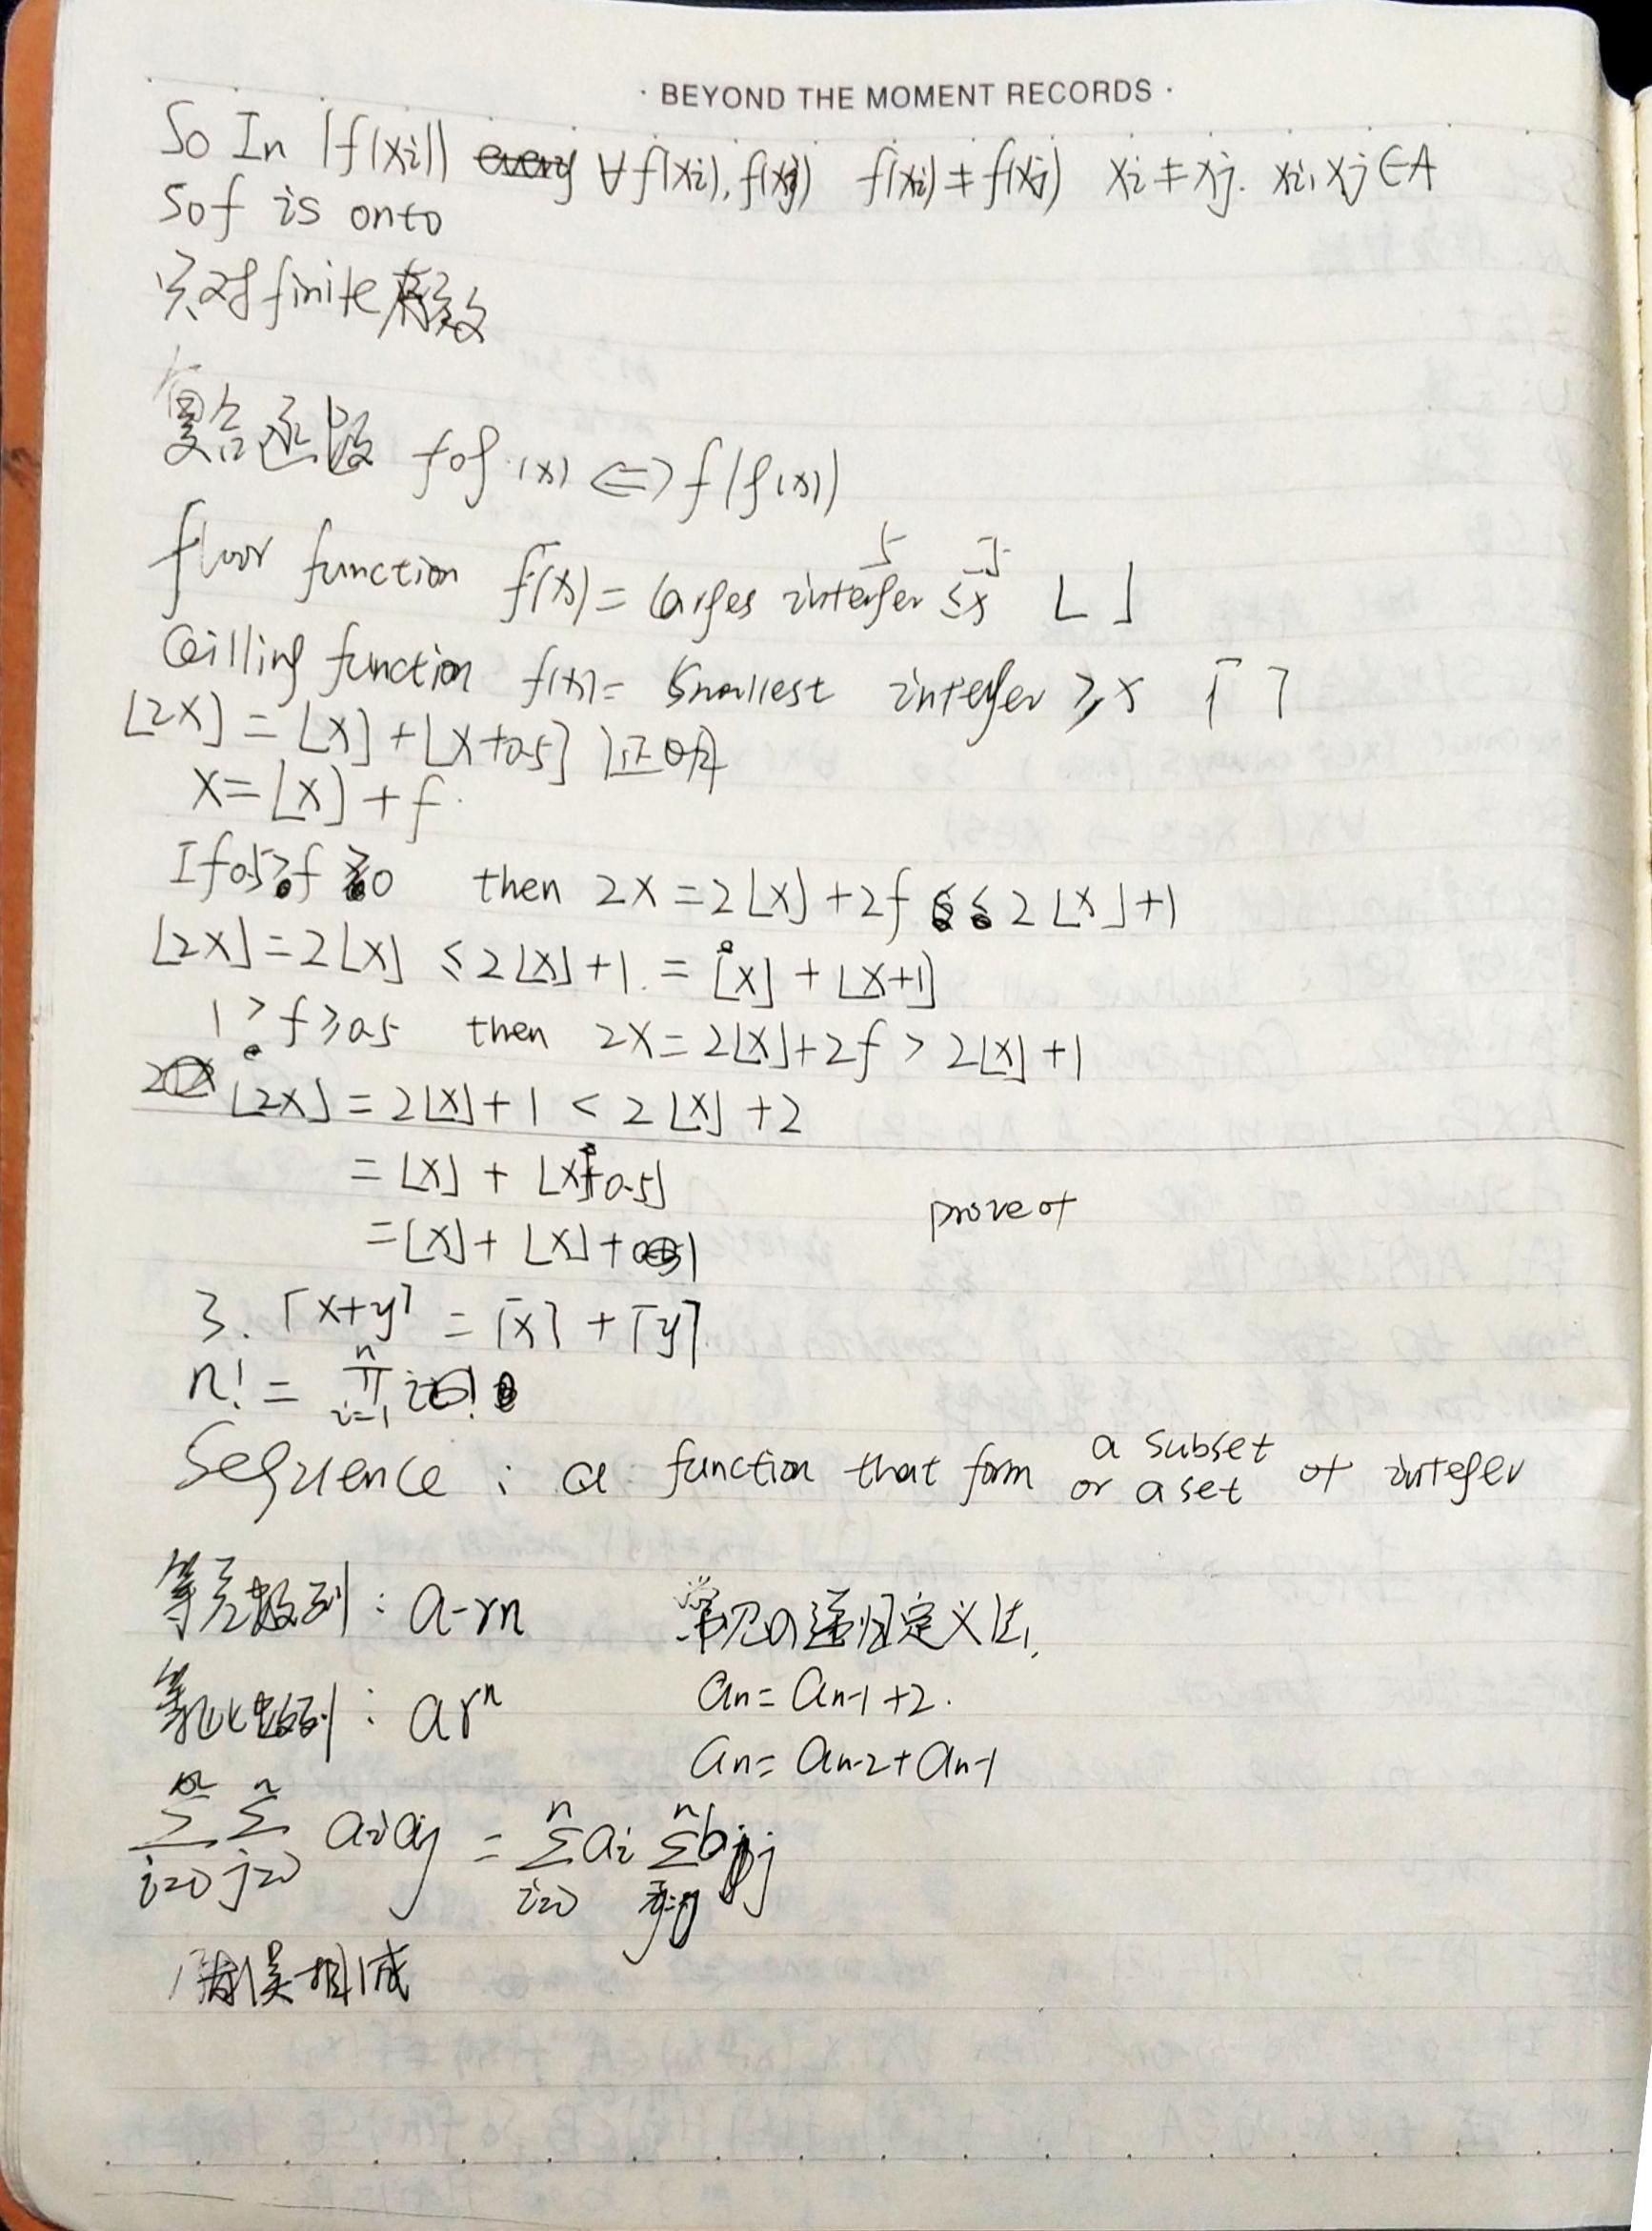 · BEYOND THE MOMENT RECORDS ·
So In |f(xi)| ∀f(xi), f(xj) f(xi)≠f(xj) xi≠xj. xi,xj∈A
So f is onto
只对finite有效
复合函数 fog(x) ⇔ f(g(x))
floor function f(x) = larges interger ≤x ⌊ ⌋
Ceilling function f(x) = smallest interger ≥x ⌈ ⌉
⌊2x⌋ = ⌊x⌋ + ⌊x+0.5⌋ 证明
x = ⌊x⌋ + f.
If 0.5>f≥0 then 2x = 2⌊x⌋ + 2f ≤ 2⌊x⌋+1
⌊2x⌋ = 2⌊x⌋ ≤ 2⌊x⌋+1. = ⌊x⌋ + ⌊x+1⌋
1 > f ≥ 0.5 then 2x = 2⌊x⌋+2f > 2⌊x⌋+1
⌊2x⌋ = 2⌊x⌋+1 < 2⌊x⌋+2
= ⌊x⌋ + ⌊x+0.5⌋
prove of
= ⌊x⌋ + ⌊x⌋ + 1
3. ⌈x+y⌉ = ⌈x⌉ + ⌈y⌉
n! = ∏ⁿᵢ₌₁ i
Sequence : a function that form a subset or a set of interger
等差数列 : a-rn 常见的递归定义法,
等比数列 : arⁿ an = an-1 + 2.
an = an-2 + an-1
Σ i=0 Σ j=0 n aiaj = Σ i=0 n ai Σ n bj
错误相减